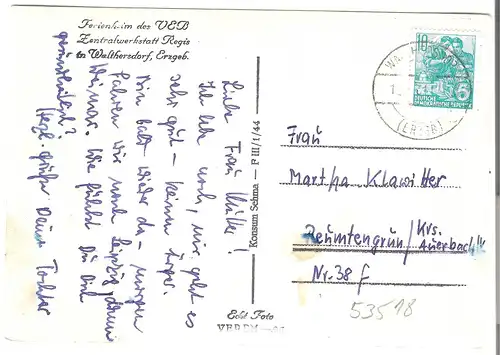 Ferienheim des VEB
Zentralwerkstatt Regis
in Walthersdorf, Erzgeb.
Liebe Frau
Ich lebe noch, mir geht es
sehr gut – keinen Ärger.
Bin bald wieder da – morgen
fahren wir nach Leipzig, dann
Weimar. Wie fühlst Du Dich
gesundheitlich?
Herzl. Grüße Deine Tochter
Konsum Sehma — P III/1/44
Echt Foto
10
DEUTSCHE
DEMOKRATISCHE REPUBLIK
(ERZGEB)
Frau
Martha Klawitter
Reumtengrün/Krs.
Auerbach/V
Nr. 38 f
53518